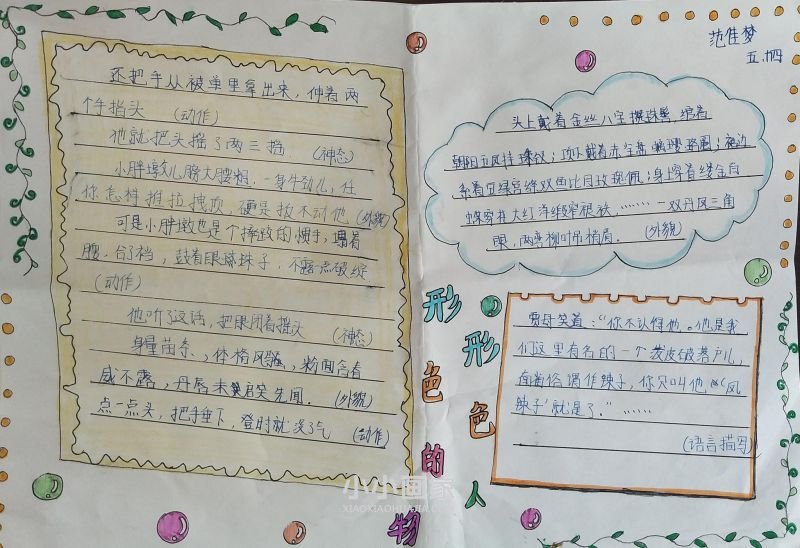 还把手从被单里拿出来，伸着两
个手指头 (动作)
他就把头摇了两三摇 (神态)
小胖墩儿膀大腰粗，一身牛劲儿，任
你怎样推拉拽顶，硬是扳不动他 (外貌)
可是小胖墩也是个摔跤的惯手，塌着
腰，合了裆，鼓着眼珠子，不露点破绽
(动作)
他听了这话，把眼闭着摇头 (神态)
身量苗条、体格风骚，粉面含春
威不露，丹唇未启笑先闻。 (外貌)
点一点头，把手垂下，登时就没了气 (动作)
形形色色的人物
范佳梦
五.四
头上戴着金丝八宝攒珠髻，绾着
朝阳五凤挂珠钗；项下戴着赤金盘螭璎珞圈；裙边
系着豆绿宫绦双鱼比目玫瑰佩；身上穿着缕金百
蝶穿花大红洋缎窄裉袄，……一双丹凤三角
眼，两弯柳叶吊梢眉。 (外貌)
贾母笑道："你不认得他。他是我
们这里有名的一个泼皮破落户儿，
南省俗谓作辣子，你只叫他"凤
辣子'就是了。"……
(语言描写)
小小画家
XIAOXIAOHUAJIA.COM